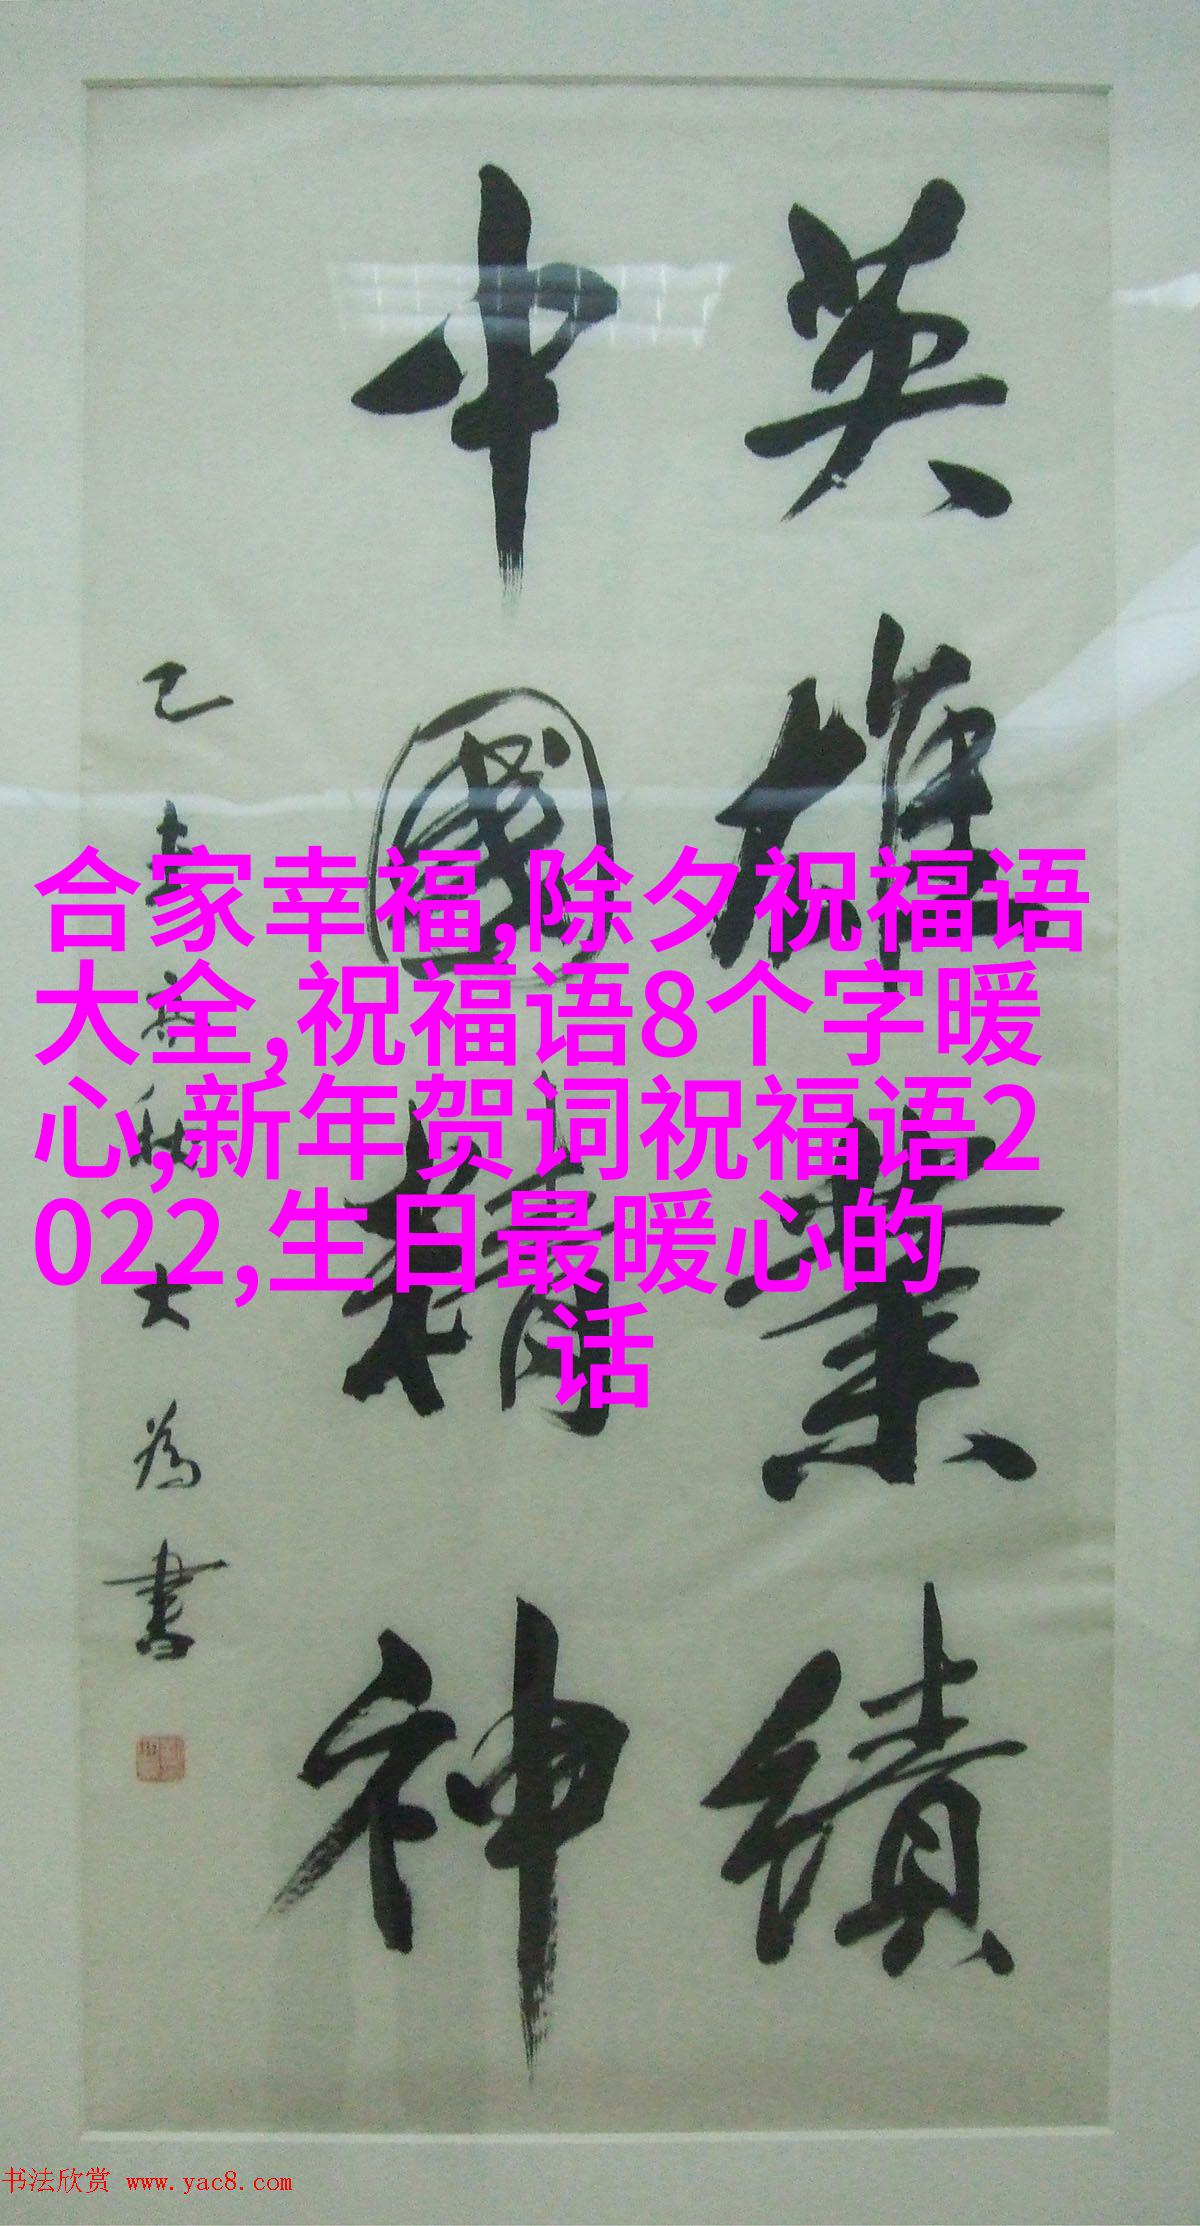 英雄業績
中國精神
大為書
合家幸福,除夕祝福语
大全,祝福语8个字暖
心,新年贺词祝福语2
022,生日最暖心的
话
书法欣赏 www.yac8.com